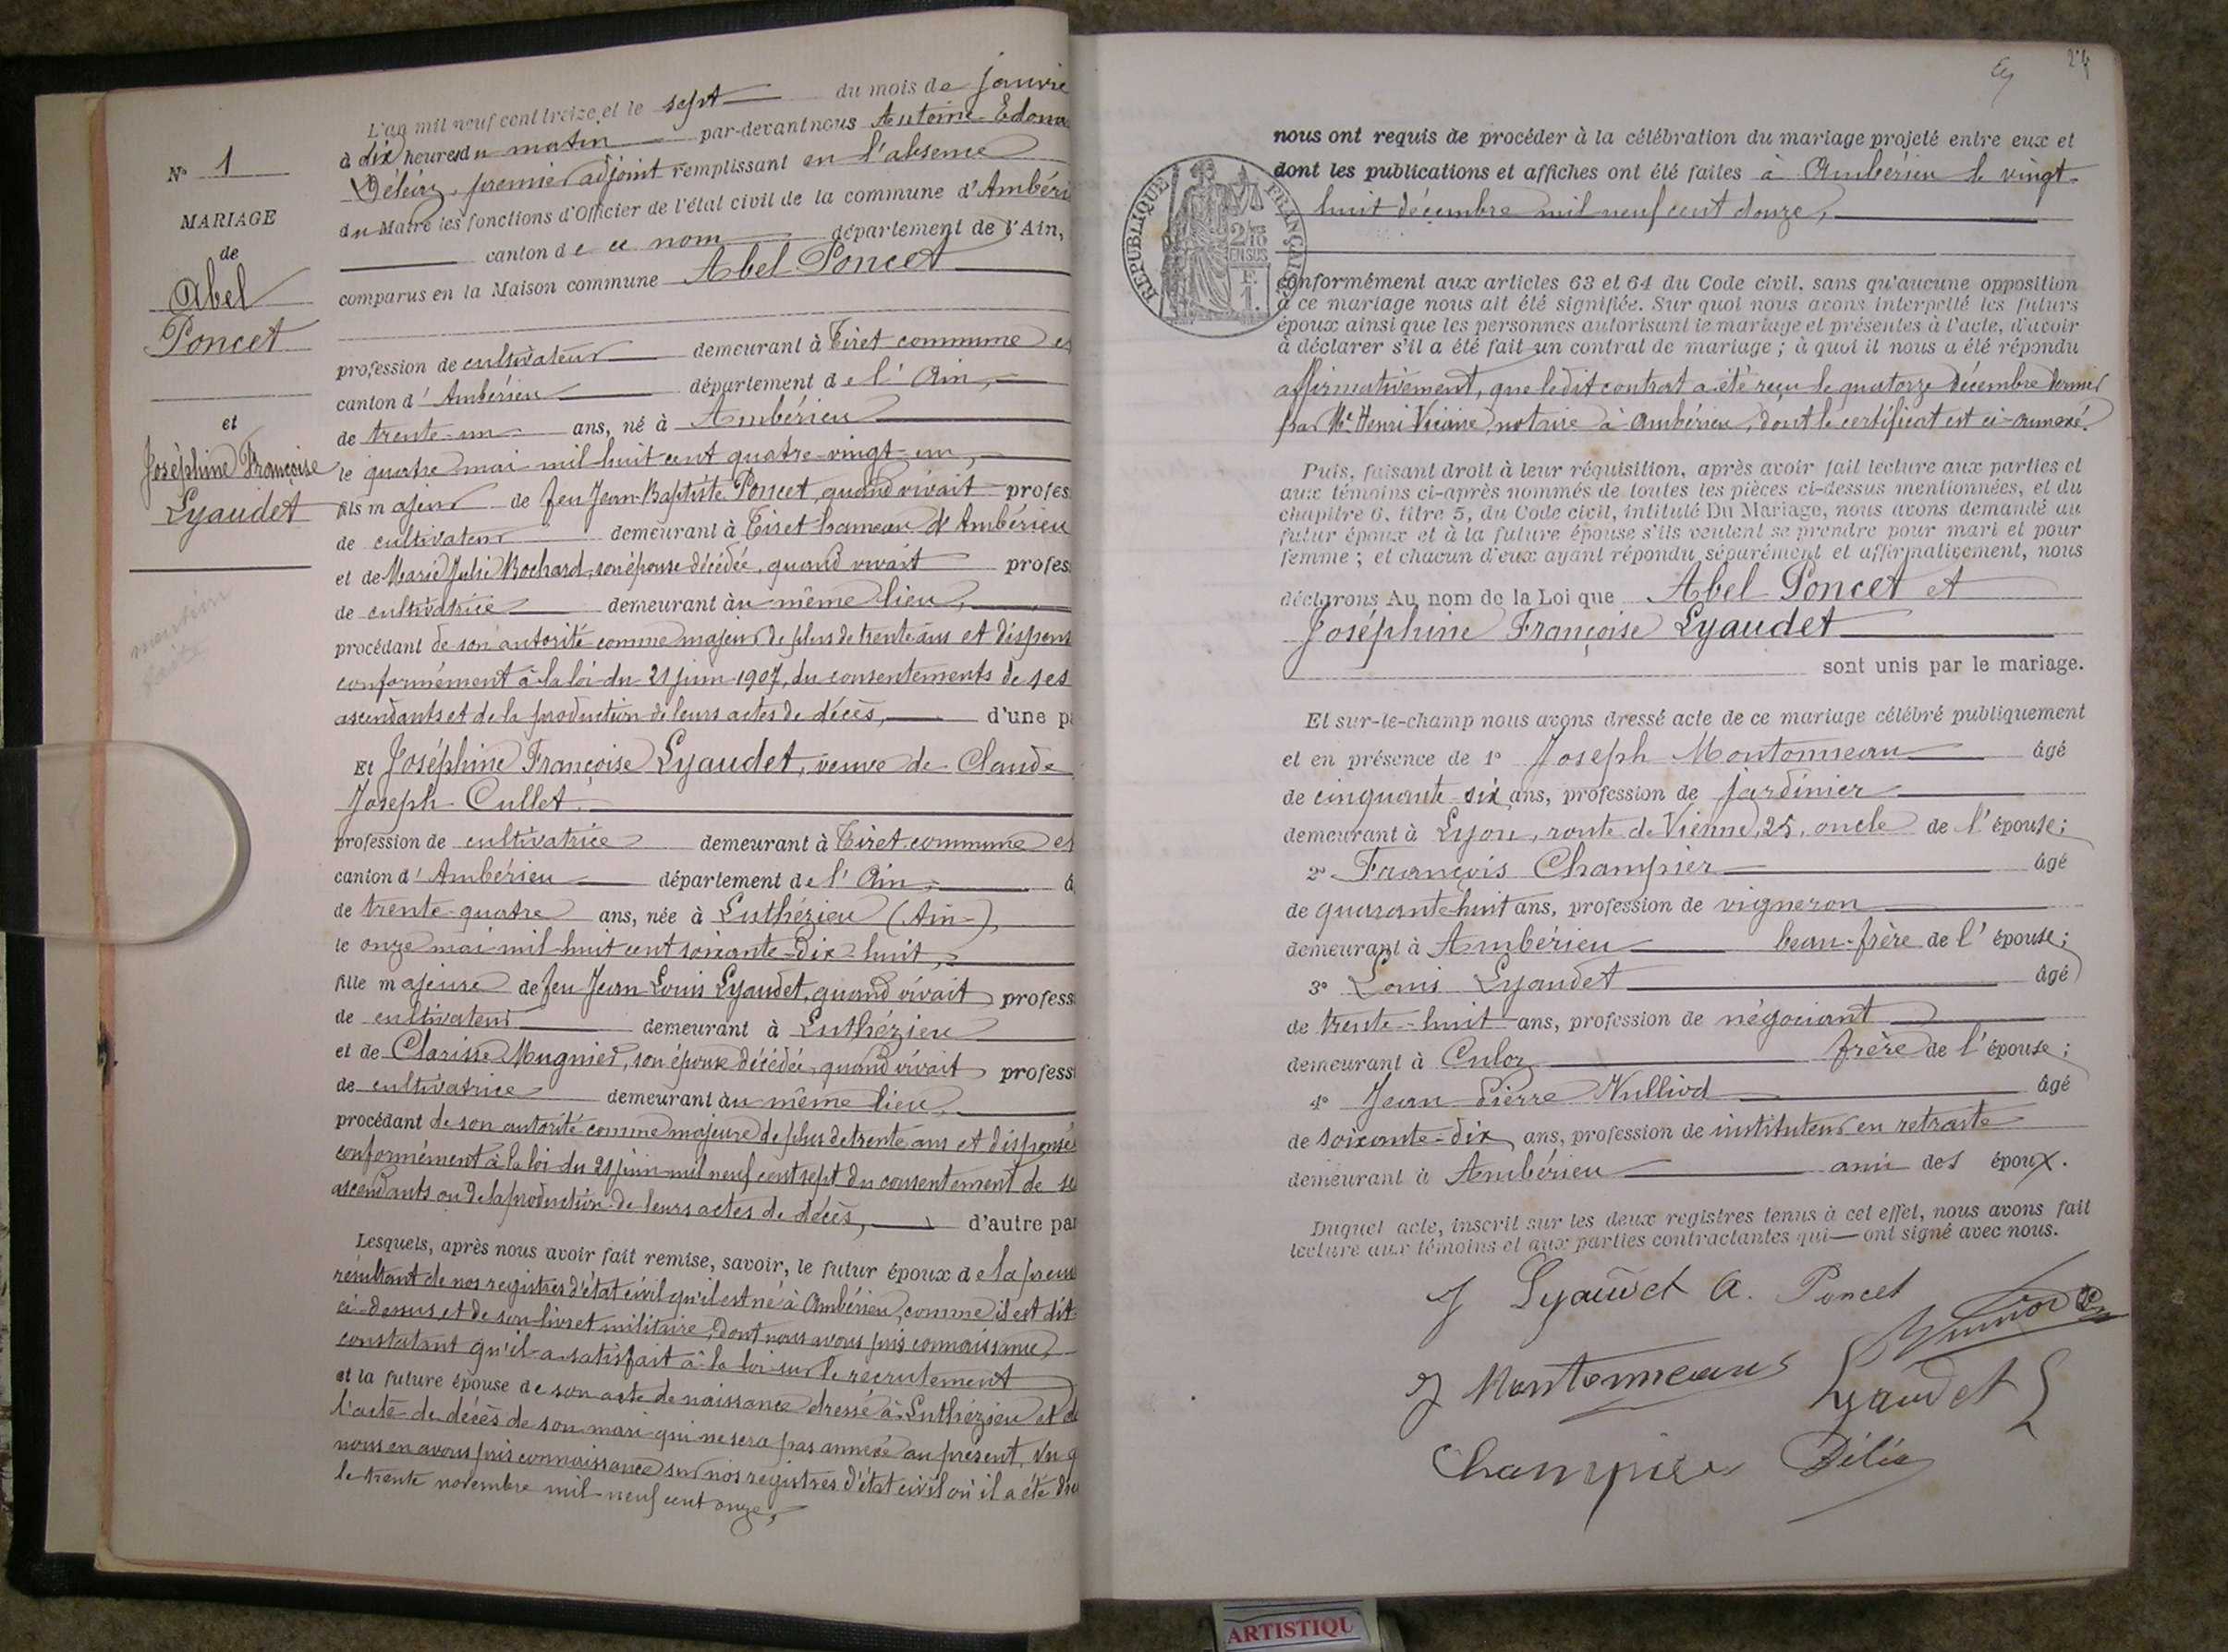 L'an mil neuf cent treize et le sept du mois de janvie
à dix heures du matin par-devant nous Antoine Edoua
premier adjoint remplissant en l'absence
du Maire les fonctions d'Officier de l'état civil de la commune d'Ambéri
canton de ce nom département de l'Ain,
comparus en la Maison commune Abel Poncet
N° 1
MARIAGE
de
Abel
Poncet
et
Joséphine Françoise
Lyaudet
mention
faite
profession de cultivateur demeurant à Tiret commune et
canton d'Ambérieu département de l'Ain,
de trente-un ans, né à Ambérieu
le quatre mai mil huit cent quatre-vingt-un,
fils majeur de feu Jean-Baptiste Poncet, quand vivait profes
de cultivateur demeurant à Tiret hameau d'Ambérieu
et de Marie Julie Bochard, son épouse décédée, quand vivait profes
de cultivatrice demeurant au même lieu,
procédant de son autorité comme majeur de plus de trente ans et dispens
conformément à la loi du 21 juin 1907, du consentements de ses
ascendants et de la production de leurs actes de décès, d'une pa
Et Joséphine Françoise Lyaudet, veuve de Claude
Joseph Cullet.
profession de cultivatrice demeurant à Tiret commune et
canton d'Ambérieu département de l'Ain, â
de trente-quatre ans, née à Luthézieu (Ain),
le onze mai mil huit cent soixante-dix-huit,
fille majeure de feu Jean Louis Lyaudet, quand vivait profess
de cultivateur demeurant à Luthézieu
et de Clarisse Mugnier, son épouse décédée, quand vivait profess
de cultivatrice demeurant au même lieu,
procédant de son autorité comme majeure de plus de trente ans et dispensé
conformément à la loi du 21 juin mil neuf cent sept du consentement de se
ascendants ou de la production de leurs actes de décès, d'autre par
Lesquels, après nous avoir fait remise, savoir, le futur époux de la preuve
résultant de nos registres d'état civil qu'il est né à Ambérieu, comme il est dit
ci-dessus, et de son livret militaire, dont nous avons pris connaissance,
constatant qu'il a satisfait à la loi sur le recrutement
et la future épouse de son acte de naissance dressé à Luthézieu et de
l'acte de décès de son mari qui ne sera pas annexé au présent, vu q
nous en avons pris connaissance sur nos registres d'état civil où il a été dre
le trente novembre mil neuf cent onze,
24
nous ont requis de procéder à la célébration du mariage projeté entre eux et
dont les publications et affiches ont été faites à Ambérieu le vingt-
huit décembre mil neuf cent douze,
REPUBLIQUE FRANÇAISE
2/10
EN SUS
F.
1.
conformément aux articles 63 et 64 du Code civil, sans qu'aucune opposition
à ce mariage nous ait été signifiée. Sur quoi nous avons interpellé les futurs
époux ainsi que les personnes autorisant le mariage et présentes à l'acte, d'avoir
à déclarer s'il a été fait un contrat de mariage ; à quoi il nous a été répondu
affirmativement, que ledit contrat a été reçu le quatorze décembre dernier
par Me Henri notaire à Ambérieu, dont le certificat est ci-annexé.
Puis, faisant droit à leur réquisition, après avoir fait lecture aux parties et
aux témoins ci-après nommés de toutes les pièces ci-dessus mentionnées, et du
chapitre 6, titre 5, du Code civil, intitulé Du Mariage, nous avons demandé au
futur époux et à la future épouse s'ils veulent se prendre pour mari et pour
femme ; et chacun d'eux ayant répondu séparément et affirmativement, nous
déclarons Au nom de la Loi que Abel Poncet et
Joséphine Françoise Lyaudet
sont unis par le mariage.
Et sur-le-champ nous avons dressé acte de ce mariage célébré publiquement
et en présence de 1° Joseph Montonneau âgé
de cinquante-six ans, profession de jardinier
demeurant à Lyon, route de Vienne, 25, oncle de l'épouse;
2° François Champier âgé
de quarante-huit ans, profession de vigneron
demeurant à Ambérieu beau-frère de l'épouse;
3° Louis Lyaudet âgé
de trente-huit ans, profession de négociant
demeurant à Culoz frère de l'épouse;
4° Jean Pierre Nulliod âgé
de soixante-dix ans, profession de instituteur en retraite
demeurant à Ambérieu ami des époux.
Duquel acte, inscrit sur les deux registres tenus à cet effet, nous avons fait
lecture aux témoins et aux parties contractantes qui ont signé avec nous.
J Lyaudet A. Poncet
J Montonneau Lyaudet L
Champier
ARTISTIQU